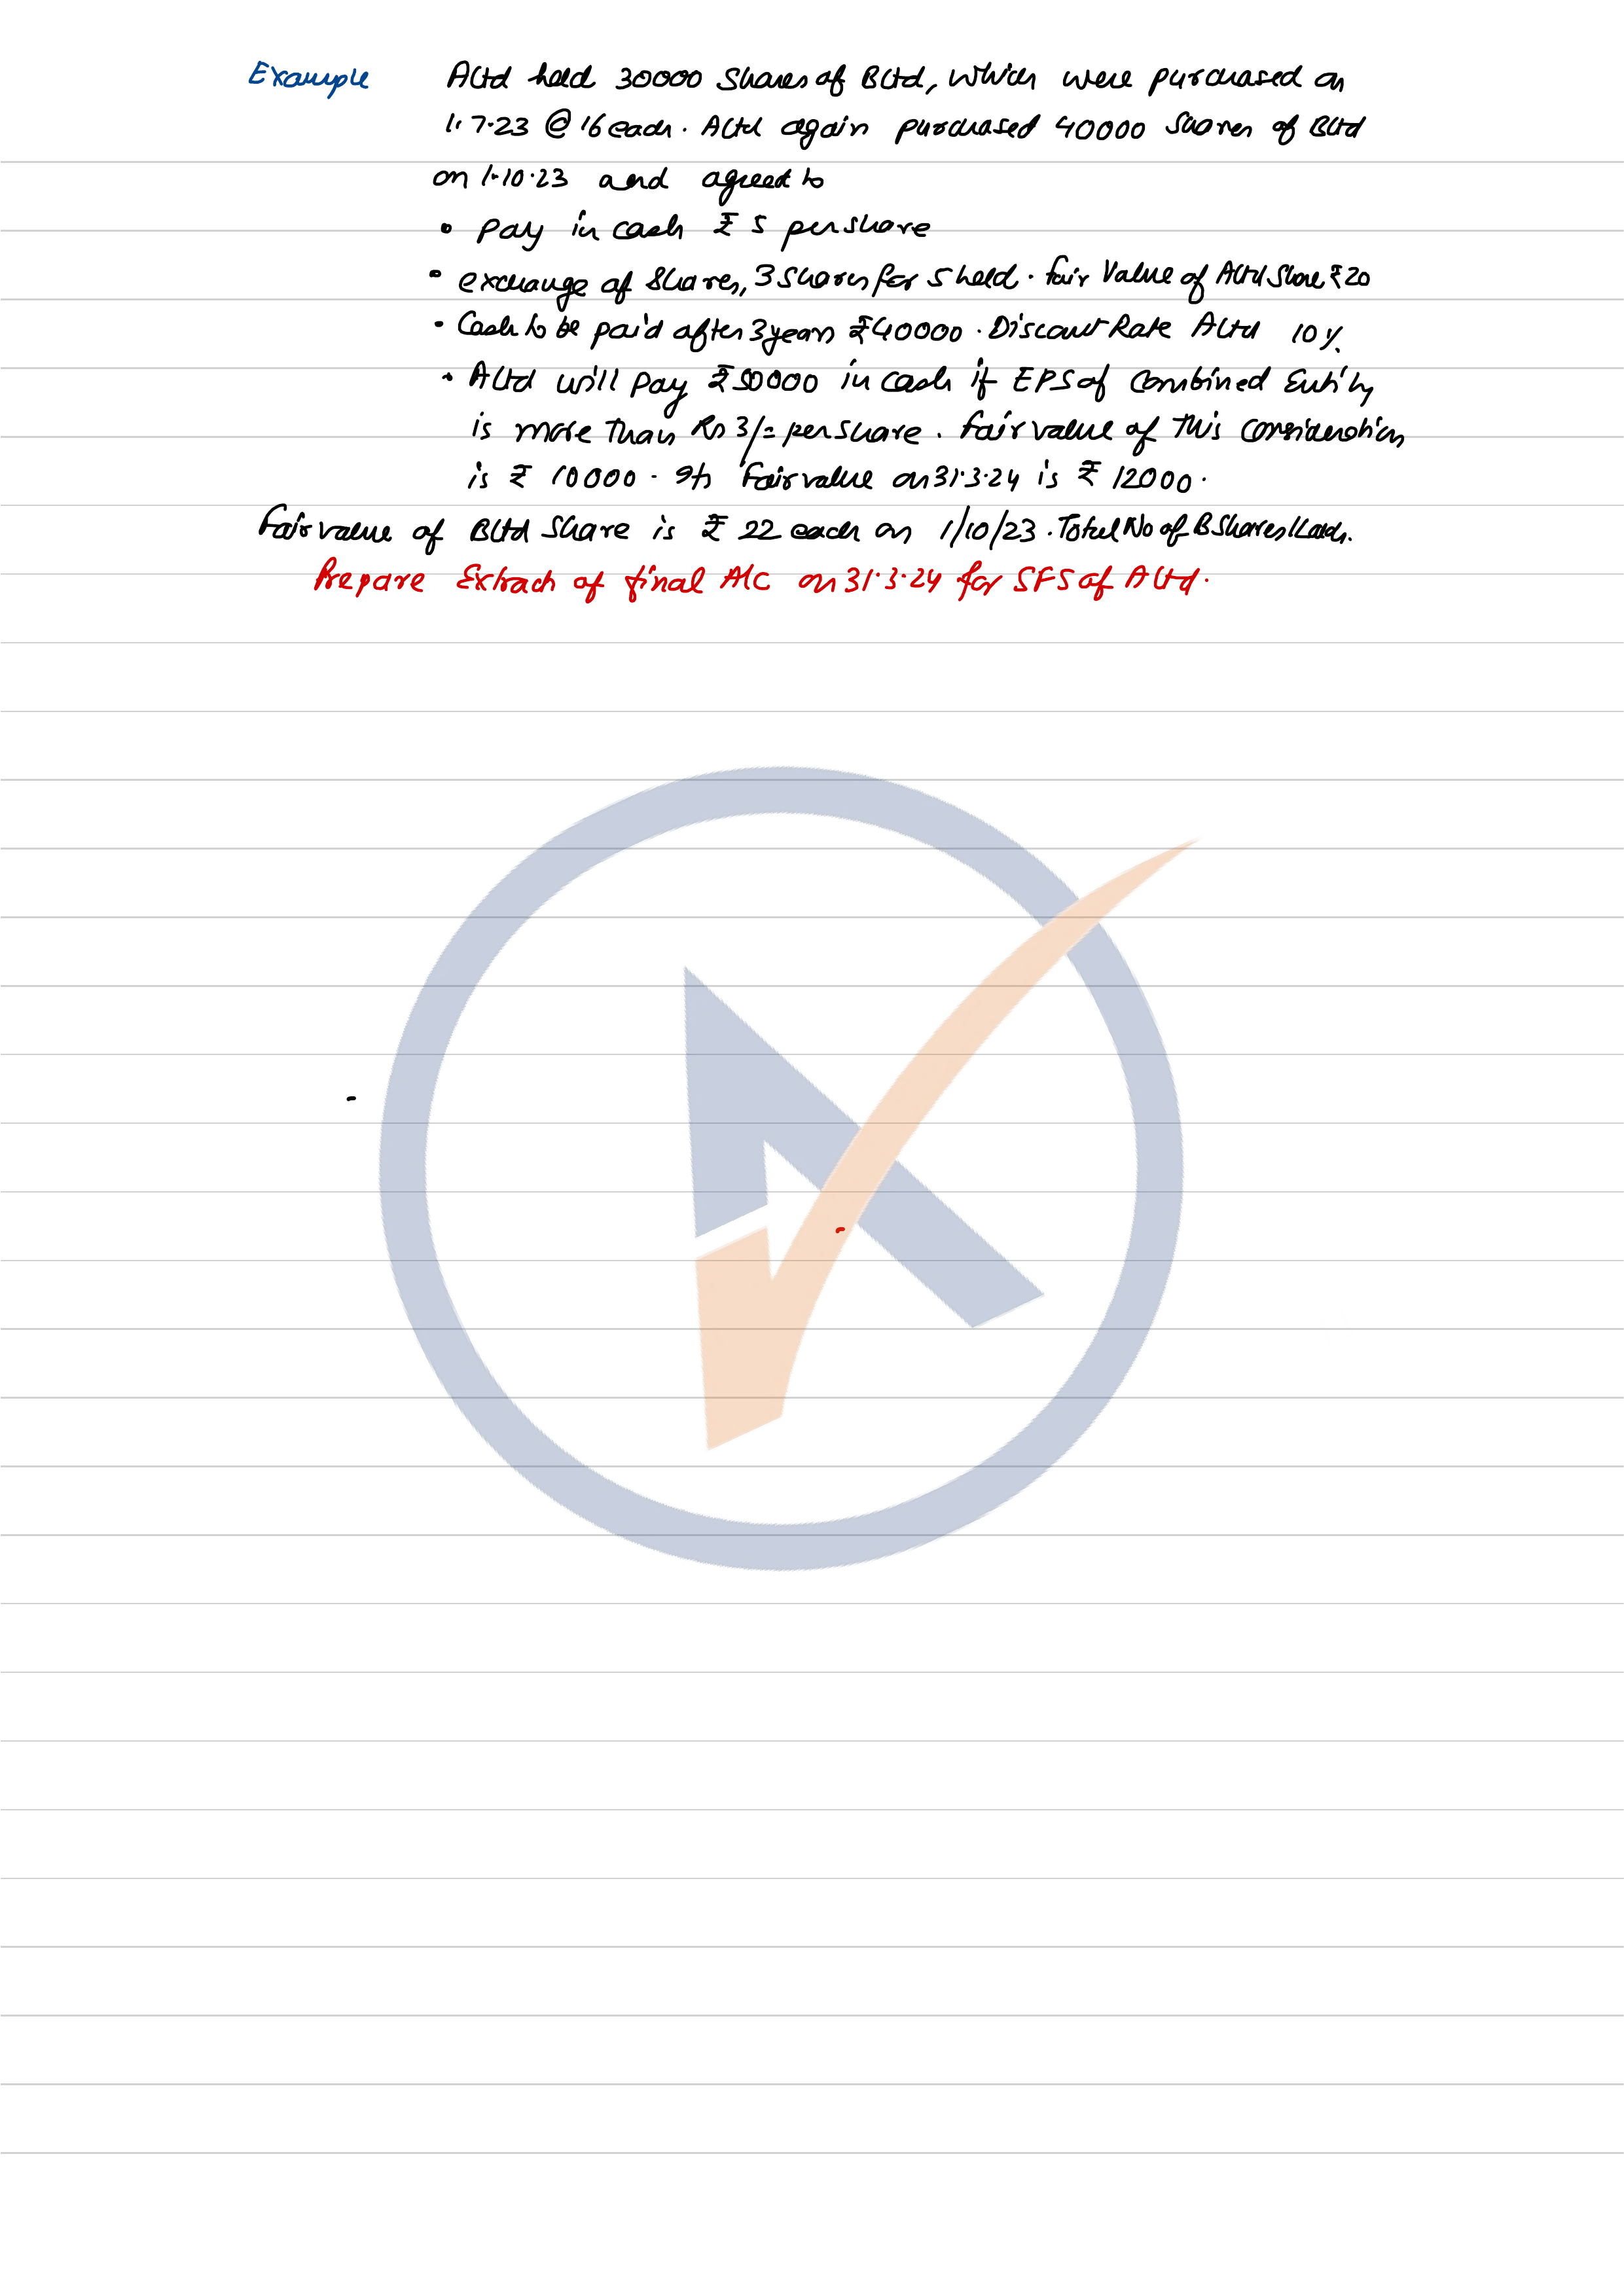 Example A Ltd held 30000 Shares of B Ltd, which were purchased on
1.7.23 @ 16 each. A Ltd again purchased 40000 Shares of B Ltd
on 1.10.23 and agreed to
• Pay in cash ₹ 5 per share
• exchange of shares, 3 shares for 5 held. Fair Value of A Ltd Share ₹ 20
• Cash to be paid after 3 years ₹ 40000. Discount Rate A Ltd 10%
• A Ltd will pay ₹ 50000 in cash if EPS of Combined Entity
is more than Rs 3/= per share. Fair value of This consideration
is ₹ 10000. Its Fair value on 31.3.24 is ₹ 12000.
Fair value of B Ltd Share is ₹ 22 each on 1/10/23. Total No of B Shares 1 Lakh.
Prepare Extract of final A/C on 31.3.24 for SFS of A Ltd.